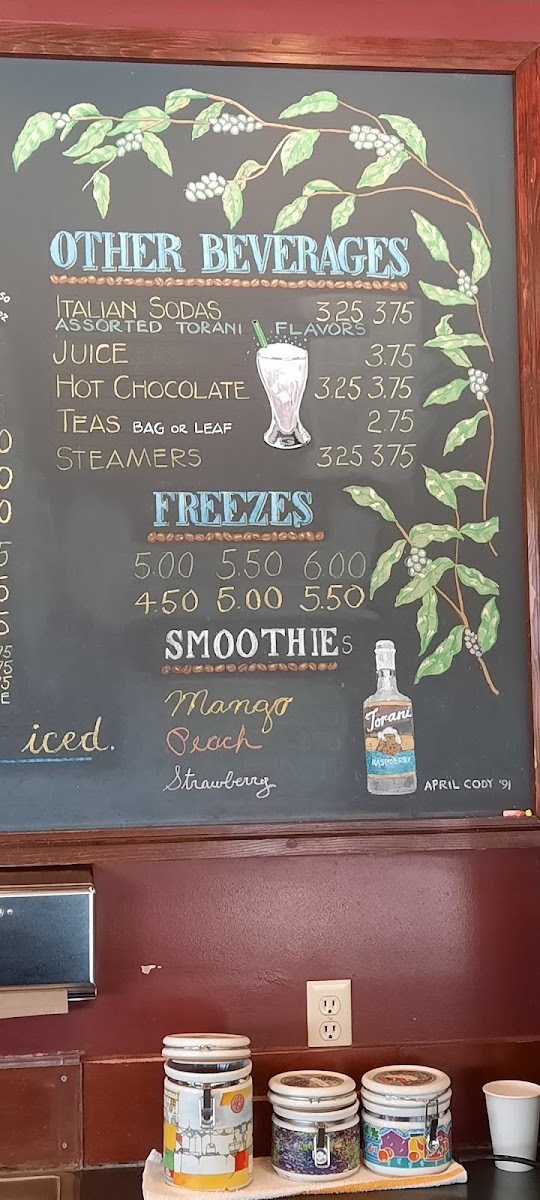 OTHER BEVERAGES
ITALIAN SODAS 3.25 3.75
ASSORTED TORANI FLAVORS
JUICE 3.75
HOT CHOCOLATE 3.25 3.75
TEAS BAG OR LEAF 2.75
STEAMERS 3.25 3.75
FREEZES
5.00 5.50 6.00
4.50 5.00 5.50
SMOOTHIES
Mango
Peach
Strawberry
iced.
Torani
RASPBERRY
APRIL CODY '91